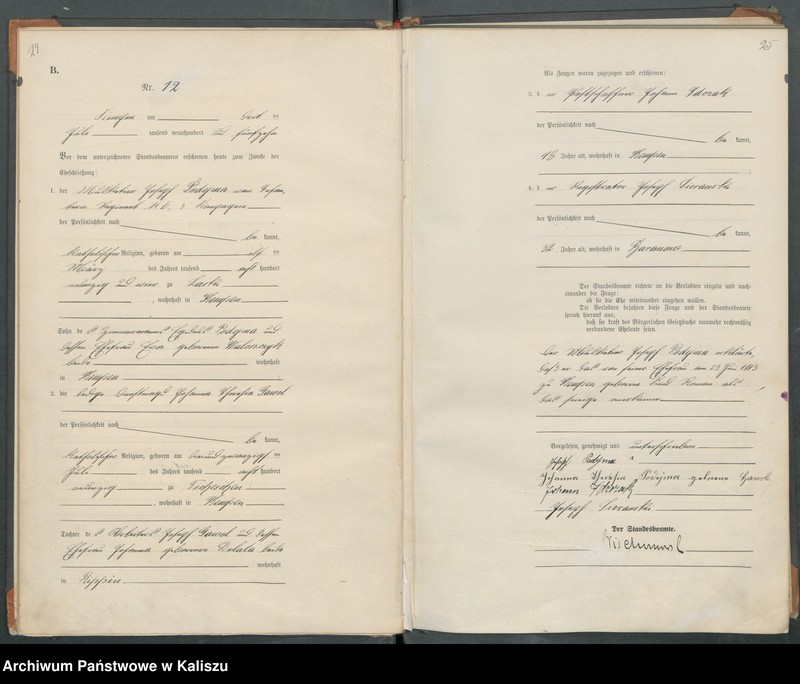 24
B.
Nr. 12
Kempen am
Juli tausend neunhundert und fünfzehn
Vor dem unterzeichneten Standesbeamten erschienen heute zum Zwecke der
Eheschließung:
1. der Musketier Joseph Podyma vom
der Persönlichkeit nach
be kannt,
katholischer Religion, geboren am
März des Jahres tausend acht hundert
neunzig und vier zu
, wohnhaft in Kempen
Sohn des Zimmermanns Podyma und
dessen Ehefrau Eva geborenen
beide wohnhaft
in Kempen
2. die ledige Dienstmagd Johanna Theresia Gawol
der Persönlichkeit nach
be kannt,
katholischer Religion, geboren am dreiundzwanzigsten
Juli des Jahres tausend acht hundert
neunzig zu
, wohnhaft in Kempen
Tochter des Arbeiters Joseph Gawol und dessen
Ehefrau Johanna geborenen beide
wohnhaft
in
25
Als Zeugen waren zugezogen und erschienen:
3. der Johann
der Persönlichkeit nach
be kannt,
Jahre alt, wohnhaft in Kempen
4. der Registrator Joseph Sieranski
der Persönlichkeit nach
be kannt,
32 Jahre alt, wohnhaft in Baranow
Der Standesbeamte richtete an die Verlobten einzeln und nach-
einander die Frage:
ob sie die Ehe miteinander eingehen wollen.
Die Verlobten bejahten diese Frage und der Standesbeamte
sprach hierauf aus,
daß sie kraft des Bürgerlichen Gesetzbuchs nunmehr rechtmäßig
verbundene Eheleute seien.
Der Musketier Joseph Podyma erklärte,
daß er das von seiner Ehefrau am 23 Juni 1913
zu Kempen geborene Kind Roman als
das seinige anerkenne
Vorgelesen, genehmigt und unterschrieben
Josef Podyma
Johanna Theresia Podyma geborene Gawol
Johann
Joseph Sieranski
Der Standesbeamte.
Archiwum Państwowe w Kaliszu